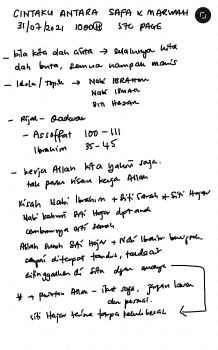 CINTAKU ANTARA SAFA & MARWAH
31/07/2021 1000H STC PAGE
- bila kita dan cinta → selalunya kita
dah buta, semua nampak manis
- Idola / Topik → Nabi IBRAHIM
Nabi ISMAIL
Siti HAJAR
- Rujuk - Quran
- Assoffat 100 - 111
Ibrahim 35 - 45
- kerja Allah kita yakin saja.
tak perlu risau kerja Allah
Kisah Nabi Ibrahim & Siti Sarah & Siti Hajar
Nabi kahwini Siti Hajar dpt anak
cemburunya Siti Sarah
Allah suruh Siti Hajar & Nabi Ibrahim
sampai di tempat tandus,
ditinggalkan di situ dgn anaknya
* → perintah Allah - ikut saja, jangan lawan
dan persoal.
Siti Hajar terima tanpa keluh kesah